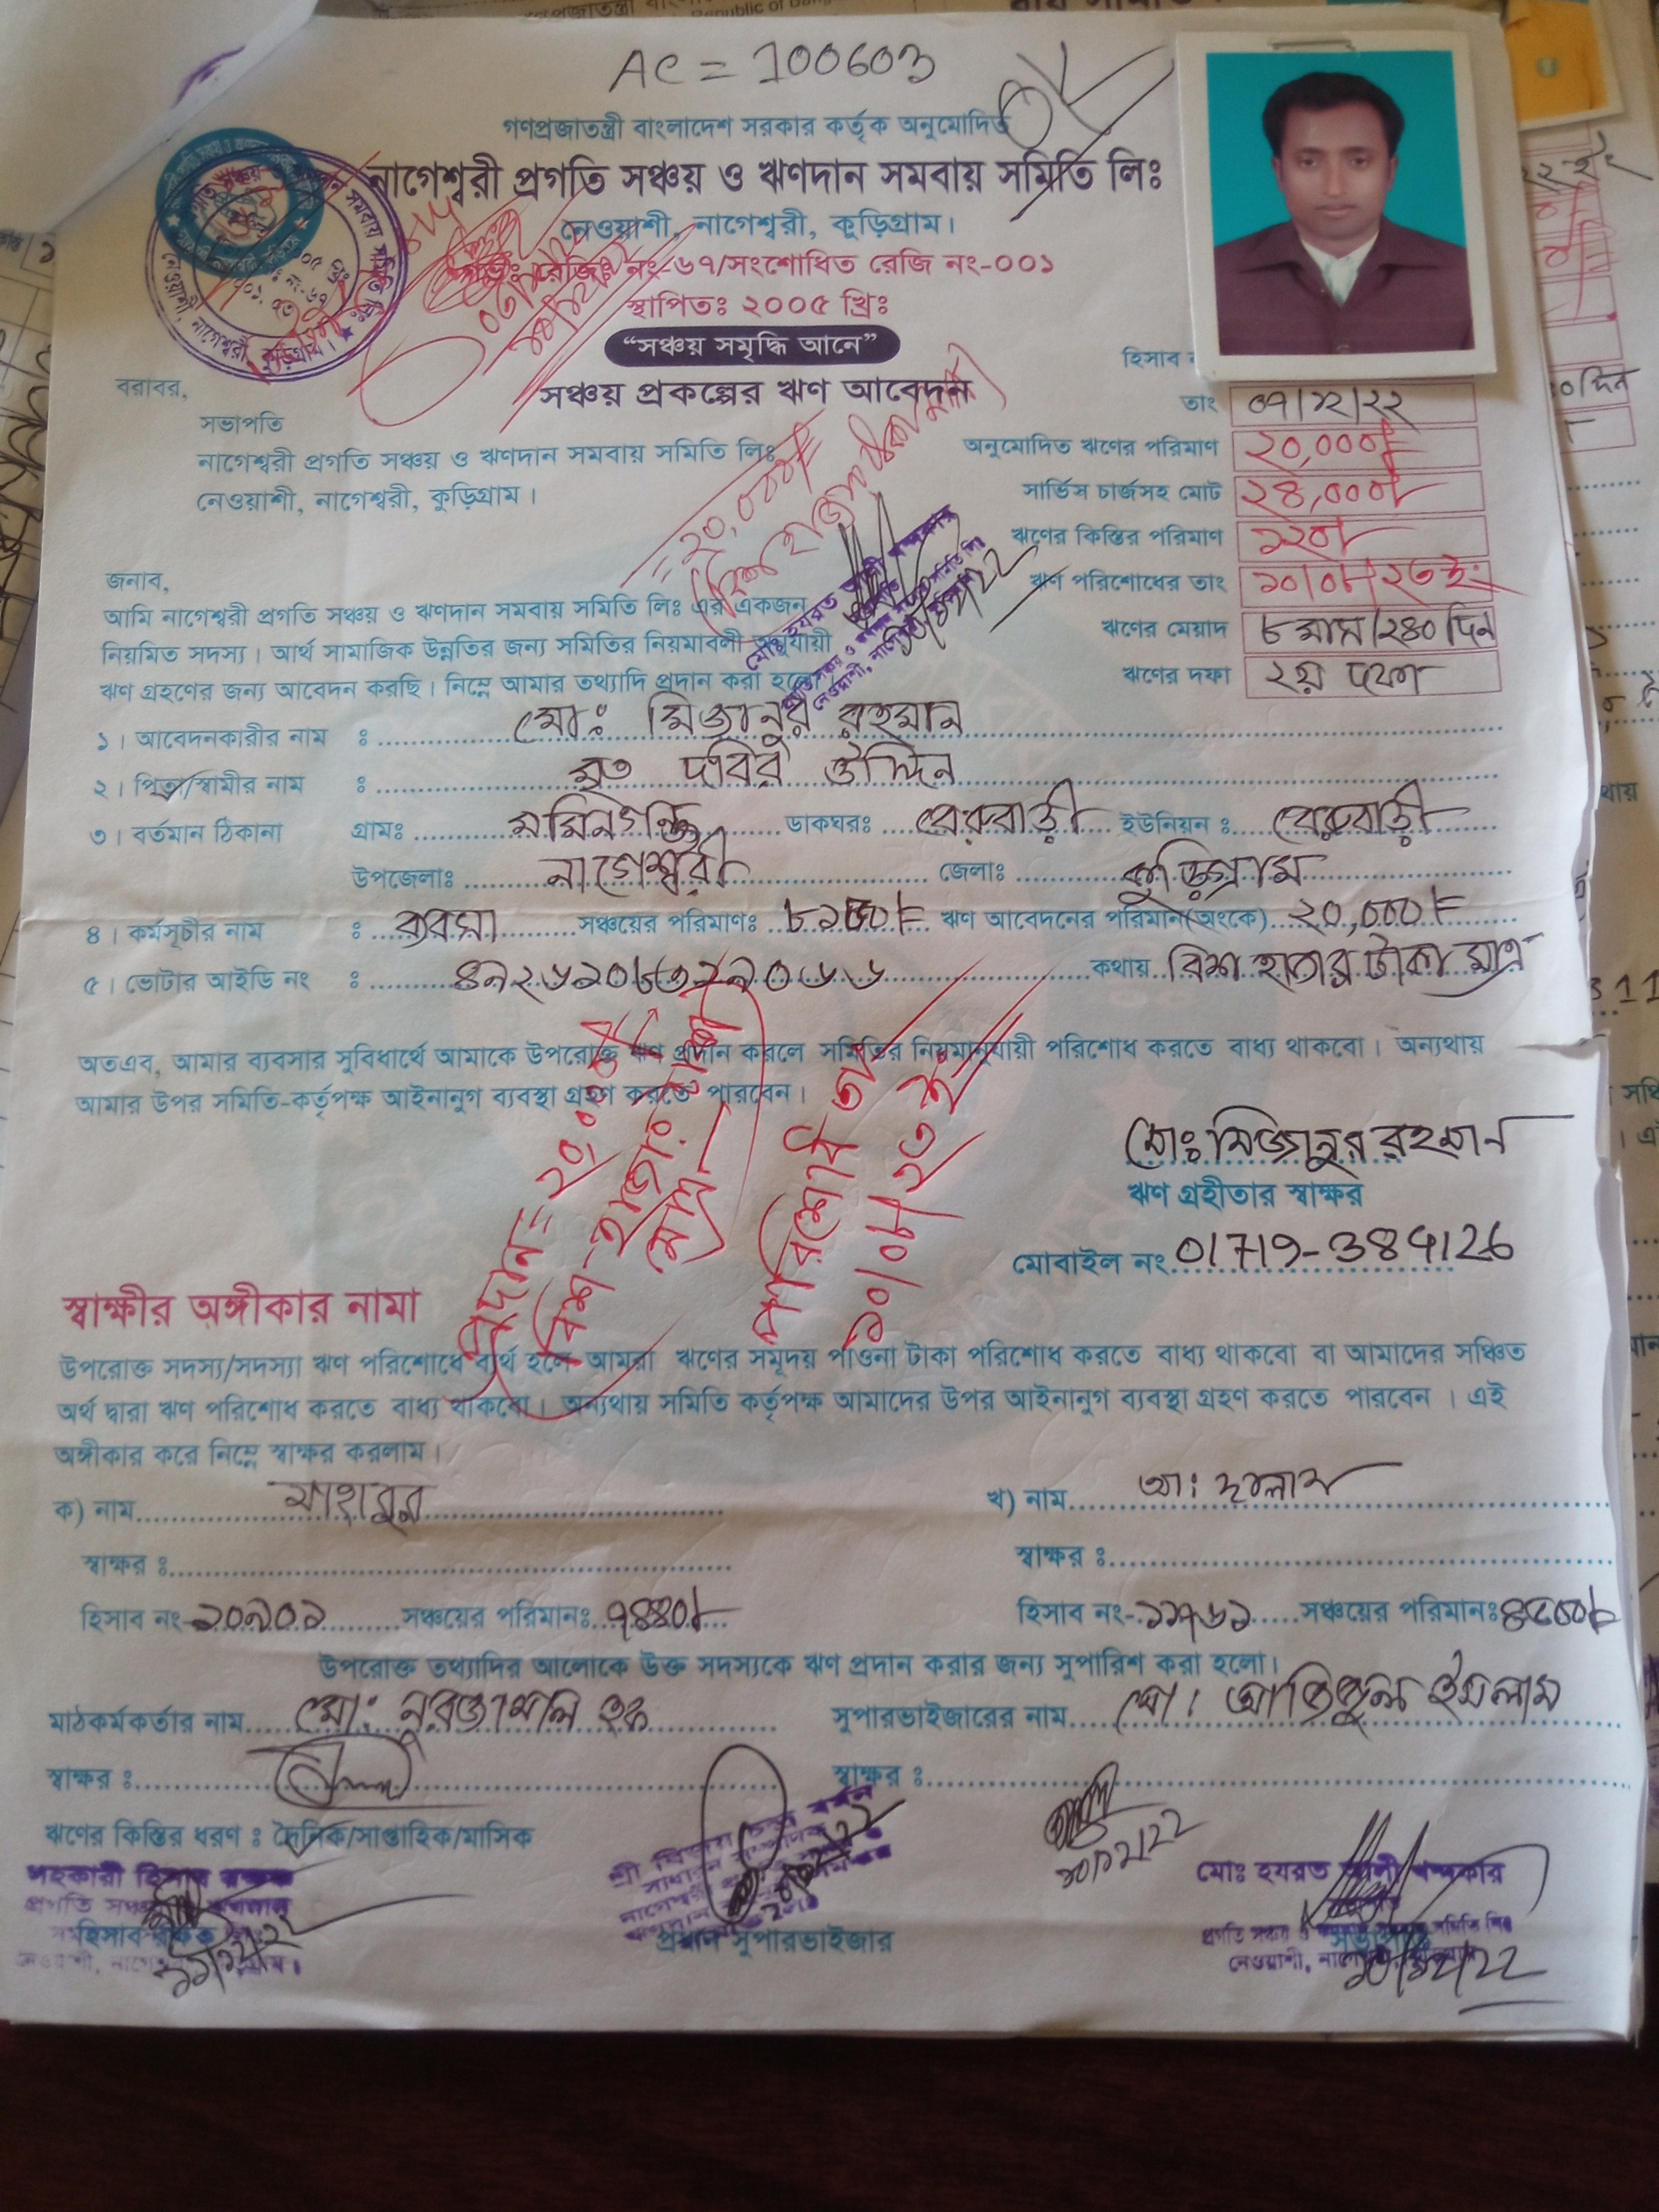 AC = 100603
গণপ্রজাতন্ত্রী বাংলাদেশ সরকার কর্তৃক অনুমোদিত
নাগেশ্বরী প্রগতি সঞ্চয় ও ঋণদান সমবায় সমিতি লিঃ
নেওয়াশী, নাগেশ্বরী, কুড়িগ্রাম।
রেজিঃ নং-৬৭/সংশোধিত রেজি নং-০০১
স্থাপিতঃ ২০০৫ খ্রিঃ
“সঞ্চয় সমৃদ্ধি আনে”
সঞ্চয় প্রকল্পের ঋণ আবেদন
হিসাব
তাং ০৭/১২/২২
অনুমোদিত ঋণের পরিমাণ ২০,০০০/=
সার্ভিস চার্জসহ মোট ২৪,০০০/-
ঋণের কিস্তির পরিমাণ ১২০/-
ঋণ পরিশোধের তাং ১০/০৮/২৩ ইং
ঋণের মেয়াদ ৮ মাস/২৪০ দিন
ঋণের দফা ২য় দফা
বরাবর,
সভাপতি
নাগেশ্বরী প্রগতি সঞ্চয় ও ঋণদান সমবায় সমিতি লিঃ
নেওয়াশী, নাগেশ্বরী, কুড়িগ্রাম।
= ২০,০০০/=
জনাব,
আমি নাগেশ্বরী প্রগতি সঞ্চয় ও ঋণদান সমবায় সমিতি লিঃ এর একজন
নিয়মিত সদস্য। আর্থ সামাজিক উন্নতির জন্য সমিতির নিয়মাবলী অনুযায়ী
ঋণ গ্রহণের জন্য আবেদন করছি। নিম্নে আমার তথ্যাদি প্রদান করা হলো
১। আবেদনকারীর নাম ঃ মোঃ মিজানুর রহমান
২। পিতা/স্বামীর নাম ঃ মৃত দবির উদ্দিন
৩। বর্তমান ঠিকানা গ্রামঃ মমিনগঞ্জ ডাকঘরঃ বেরুবাড়ী ইউনিয়ন ঃ বেরুবাড়ী
উপজেলাঃ নাগেশ্বরী জেলাঃ কুড়িগ্রাম
৪। কর্মসূচীর নাম ঃ ব্যবসা সঞ্চয়ের পরিমাণঃ ঋণ আবেদনের পরিমান(অংকে) ২০,০০০/=
৫। ভোটার আইডি নং ঃ কথায় বিশ হাজার টাকা মাত্র
অতএব, আমার ব্যবসার সুবিধার্থে আমাকে উপরোক্ত ঋণ প্রদান করলে সমিতির নিয়মানুযায়ী পরিশোধ করতে বাধ্য থাকবো। অন্যথায়
আমার উপর সমিতি-কর্তৃপক্ষ আইনানুগ ব্যবস্থা গ্রহণ করতে পারবেন।
প্রদান = ২০,০০০/=
বিশ হাজার টাকা
মাত্র
পরিশোধ তাং
১০/০৮/২৩ ইং
মোঃ মিজানুর রহমান
ঋণ গ্রহীতার স্বাক্ষর
মোবাইল নং 01719-384126
স্বাক্ষীর অঙ্গীকার নামা
উপরোক্ত সদস্য/সদস্যা ঋণ পরিশোধে ব্যর্থ হলে আমরা ঋণের সমূদয় পাওনা টাকা পরিশোধ করতে বাধ্য থাকবো বা আমাদের সঞ্চিত
অর্থ দ্বারা ঋণ পরিশোধ করতে বাধ্য থাকবো। অন্যথায় সমিতি কর্তৃপক্ষ আমাদের উপর আইনানুগ ব্যবস্থা গ্রহণ করতে পারবেন। এই
অঙ্গীকার করে নিম্নে স্বাক্ষর করলাম।
ক) নাম মাহাবুর খ) নাম আঃ ছালাম
স্বাক্ষর ঃ স্বাক্ষর ঃ
হিসাব নং- ১০১০১ সঞ্চয়ের পরিমানঃ ৭৪৪০/- হিসাব নং- ১১৭৬১ সঞ্চয়ের পরিমানঃ
উপরোক্ত তথ্যাদির আলোকে উক্ত সদস্যকে ঋণ প্রদান করার জন্য সুপারিশ করা হলো।
মাঠকর্মকর্তার নাম মোঃ নুরজামাল হক সুপারভাইজারের নাম মোঃ ইসলাম
স্বাক্ষর ঃ স্বাক্ষর ঃ
ঋণের কিস্তির ধরণ ঃ দৈনিক/সাপ্তাহিক/মাসিক
সহকারী হিসাব রক্ষক
মোঃ হযরত আলী খন্দকার
হিসাব রক্ষক প্রধান সুপারভাইজার সভাপতি
নেওয়াশী, নাগেশ্বরী, কুড়িগ্রাম।